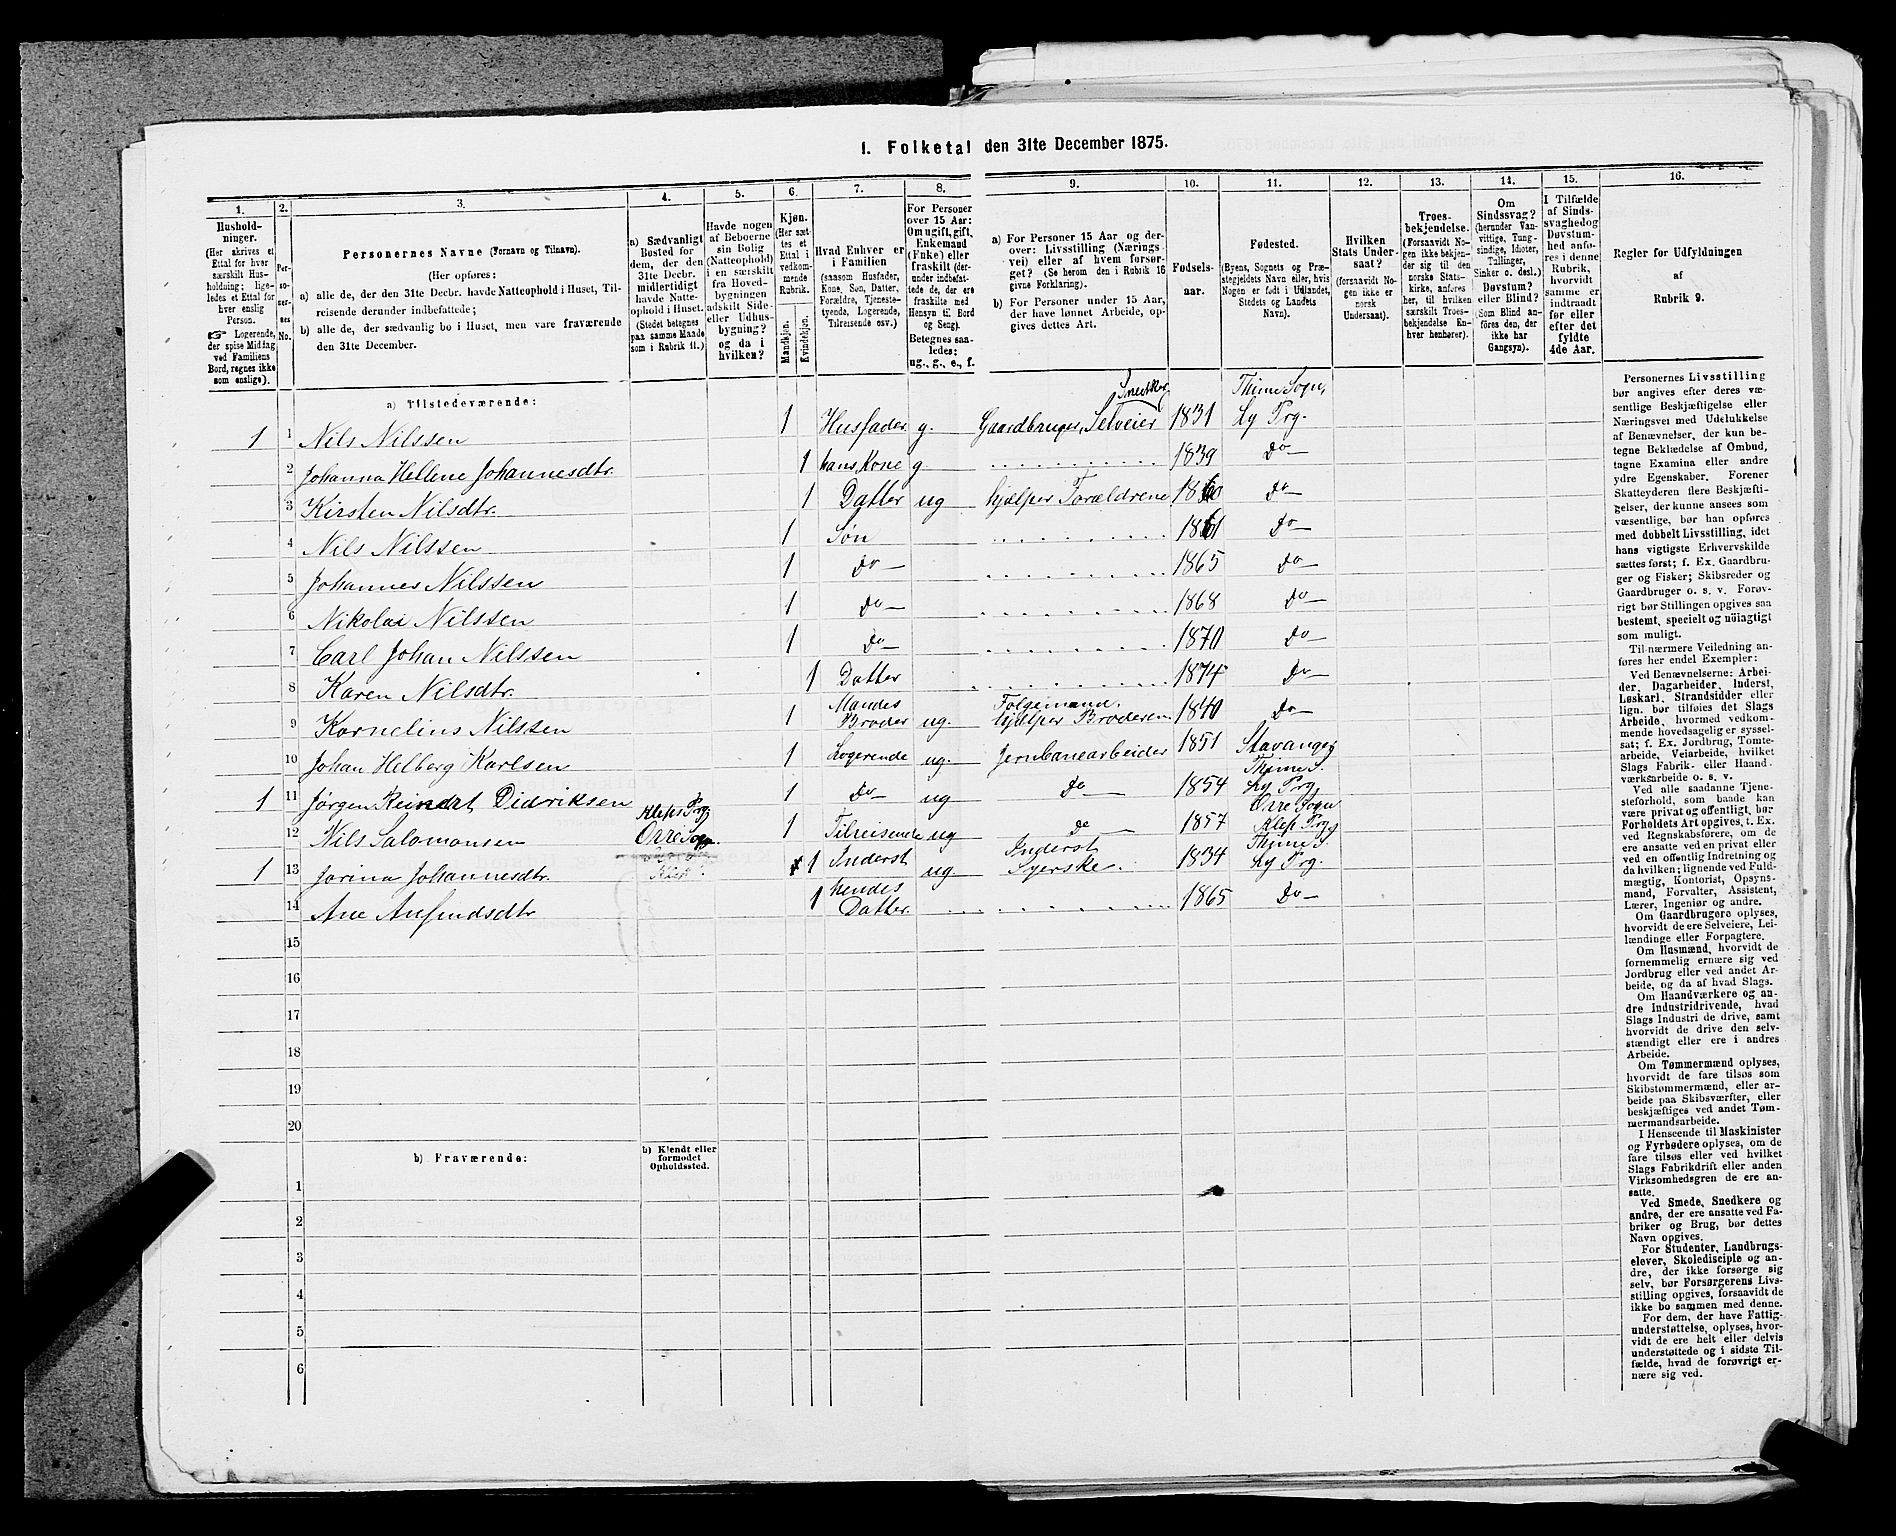 1. Folketal den 31te December 1875.
1. 2. 3. 4. 5. 6. 7. 8. 9. 10. 11. 12. 13. 14. 15. 16.
Hushold-
ninger.
(Her skrives et
Ettal for hver
særskilt Hus-
holdning; lige-
ledes et Ettal for
hver enslig
Person.
☞ Logerende,
der spise Middag
ved Familiens
Bord, regnes ikke
som enslige).
Per-
so-
ner-
nes
No.
Personernes Navne (Fornavn og Tilnavn).
(Her opføres:
a) alle de, der den 31te Decbr. havde Natteophold i Huset, Til-
reisende derunder indbefattede;
b) alle de, der sædvanlig bo i Huset, men vare fraværende
den 31te December.
a) Sædvanligt
Bosted for
dem, der den
31te Decbr.
midlertidigt
havde Natte-
ophold i Huset.
(Stedet betegnes
paa samme Maade
som i Rubrik 11.)
Havde nogen
af Beboerne
sin Bolig
(Natteophold)
i en særskilt
fra Hoved-
bygningen
adskilt Side-
eller Udhus-
bygning?
og da i
hvilken?
Kjøn.
(Her sæt-
tes et
Ettal i
vedkom-
mende
Rubrik.
Mandkjøn.
Kvindekjøn.
Hvad Enhver er
i Familien
(saasom Husfader,
Kone, Søn, Datter,
Forældre, Tjeneste-
tyende, Logerende,
Tilreisende osv.)
For Personer
over 15 Aar:
Om ugift, gift,
Enkemand
(Enke) eller
fraskilt (der-
under indbefat-
tede de, der ere
fraskilte med
Hensyn til Bord
og Seng).
Betegnes saa-
ledes:
ug., g., e., f.
a) For Personer 15 Aar og der-
over: Livsstilling (Nærings-
vei) eller af hvem forsør-
get? (Se herom den i Rubrik 16
givne Forklaring).
b) For Personer under 15 Aar,
der have lønnet Arbeide, op-
gives dettes Art.
Fødsels-
aar.
Fødested.
(Byens, Sognets og Præ-
stegjeldets Navn eller, hvis
Nogen er født i Udlandet,
Stedets og Landets
Navn).
Hvilken
Stats Under-
saat?
(forsaavidt No-
gen ikke er
norsk
Undersaat).
Troes-
bekjendelse.
(Forsaavidt No-
gen ikke bekjen-
der sig til den
norske Stats-
kirke, anføres
her, til hvilken
særskilt Troes-
bekjendelse En-
hver henhører).
Om
Sindssvag?
(herunder Van-
vittige, Tung-
sindige, Idioter,
Tullinger,
Sinker o. desl.)
Døvstum?
eller Blind?
(Som Blind an-
føres den, der
ikke har
Gangsyn).
I Tilfælde
af Sinds-
svaghed og
Døvstum-
hed anfø-
res i denne
Rubrik,
hvorvidt
samme er
indtraadt
før eller
efter det
fyldte
4de Aar.
Regler for Udfyldningen
af
Rubrik 9.
a) Tilstedeværende:
1 1 Nils Nilssen 1 Husfader g. Gaardbruger, Selveier Snedker 1831 Thime Sogn, Ly Prg.
2 Johanna Hellene Johannesdtr. 1 hans Kone g. 1839 Do
3 Kirsten Nilsdtr. 1 Datter ug hjælper Forældrene 1860 Do
4 Nils Nilssen 1 Søn 1861 Do
5 Johannes Nilssen 1 Do 1865 Do
6 Nikolai Nilssen 1 Do 1868 Do
7 Carl Johan Nilssen 1 Do 1870 Do
8 Karen Nilsdtr. 1 Datter 1874 Do
9 Kornelius Nilssen 1 Mandes Broder ug. Følgemand, hjælper Broderen 1840 Do
10 Johan Helberg Karlsen 1 Logerende ug. Jernbanearbeider 1851 Stavanger
1 11 Jørgen Reindat Didriksen 1 Do ug Do 1854 Thime S. Ly Prg
12 Nils Salomonsen Klep Prg. Orre Sogn. 1 Tilreisende ug Do 1857 Orre Sogn Klep Prg
1 13 Jorina Johannesdtr. Klep 1 Inderst ug. Inderst Syerske. 1834 Thime S. Ly Prg.
14 Ane Aufindsdtr 1 hendes Datter. 1865 Do
15
16
17
18
19
20
b) Fraværende:
b) Kjendt eller
formodet
Opholdssted.
1
2
3
4
5
6
Personernes Livsstilling
bør angives efter deres væ-
sentlige Beskjæftigelse eller
Næringsvei med Udelukkelse
af Benævnelser, der kun be-
tegne Beklædelse af Ombud,
tagne Examina eller andre
ydre Egenskaber. Forener
Skatteyderen flere Beskjæfti-
gelser, der kunne ansees som
væsentlige, bør han opføres
med dobbelt Livsstilling, idet
hans vigtigste Erhvervskilde
sættes først; f. Ex. Gaardbru-
ger og Fisker; Skibsreder og
Gaardbruger o. s. v. Forøv-
rigt bør Stillingen opgives saa
bestemt, specielt og nøiagtigt
som muligt.
Til nærmere Veiledning an-
føres her endel Exempler:
Ved Benævnelserne: Arbei-
der, Dagarbeider, Inderst,
Løskarl, Strandsidder eller
lign. bør tilføies det Slags
Arbeide, hvormed vedkom-
mende hovedsagelig er syssel-
sat; f. Ex. Jordbrug, Tomte-
arbeide, Veiarbeide, hvilket
Slags Fabrik- eller Haand
værksarbeide o. s. v.
Ved alle saadanne Tjene-
steforhold, som baade kan
være privat og offentligt, bør
Forholdets Art opgives, t. Ex.
ved Regnskabsførere, om de
ere ansatte ved en privat eller
ved en offentlig Indretning og
da hvilken; lignende ved Fuld-
mægtig, Kontorist, Opsyns-
mand, Forvalter, Assistent,
Lærer, Ingeniør og andre.
Om Gaardbrugere oplyses,
hvorvidt de ere Selveiere, Lei-
lændinge eller Forpagtere.
Om Husmænd, hvorvidt de
fornemmelig ernære sig ved
Jordbrug eller ved andet Ar-
beide, og da af hvad Slags.
Om Haandværkere og an-
dre Industridrivende, hvad
Slags Industri de drive, samt
hvorvidt de drive den selv-
stændigt eller ere i andres
Arbeide.
Om Tømmermænd oplyses,
hvorvidt de fare tilsøs som
Skibstømmermænd, eller ar-
beide paa Skibsværfter, eller
beskjæftiges ved andet Tøm-
mermandsarbeide.
I Henseende til Maskinister
og Fyrbødere oplyses, om de
fare tilsøs eller ved hvilket
Slags Fabrikdrift eller anden
Virksomhedsgren de ere an-
satte.
Ved Smede, Snedkere og
andre, der ere ansatte ved Fa-
briker og Brug, bør dettes
Navn opgives.
For Studenter, Landbrugs-
elever, Skoledisciple og an-
dre, der ikke forsørge sig
selv, bør Forsørgerens Livs-
stilling opgives, forsaavidt de
ikke bo sammen med denne.
For dem, der have Fattig-
understøttelse, oplyses, hvor-
vidt de ere helt eller delvis
understøttede og i sidste Til-
fælde, hvad de forøvrigt er-
nære sig ved.